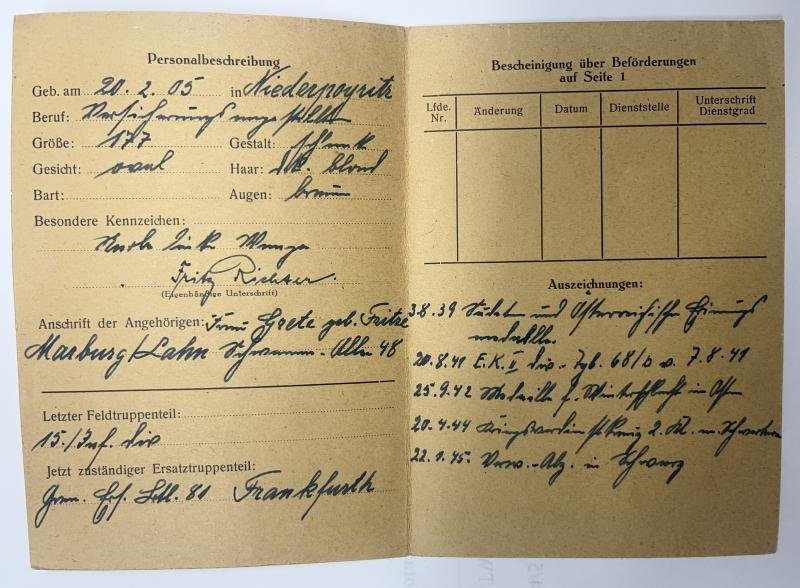 Personalbeschreibung
Geb. am 20. 2. 05 in Niederpoyritz
Beruf: Versicherungsangestellter
Größe: 177 Gestalt: schlank
Gesicht: oval Haar: dk. blond
Bart: Augen: braun
Besondere Kennzeichen:
Narbe linke Wange
Fritz Richter.
(Eigenhändige Unterschrift)
Anschrift der Angehörigen: Frau Grete geb. Fritze
Marburg/Lahn Schwanen-Allee 48
Letzter Feldtruppenteil:
15./Inf. Div
Jetzt zuständiger Ersatztruppenteil:
Gren. Ers. Btl. 81 Frankfurth
Bescheinigung über Beförderungen
auf Seite 1
Lfde. Nr. Änderung Datum Dienststelle Unterschrift Dienstgrad
Auszeichnungen:
3.8.39 Sudet und Österreichische Einungs
medaille.
20.8.41 E.K. II Div.-Tgb. 68/ v. 7.8.41
25.9.42 Medaille f. Winterschlacht im Osten
20.4.44 Kriegsverdienstkreuz 2. Kl. m. Schwertern
22.1.45. Verw.-Abz. in Schwarz